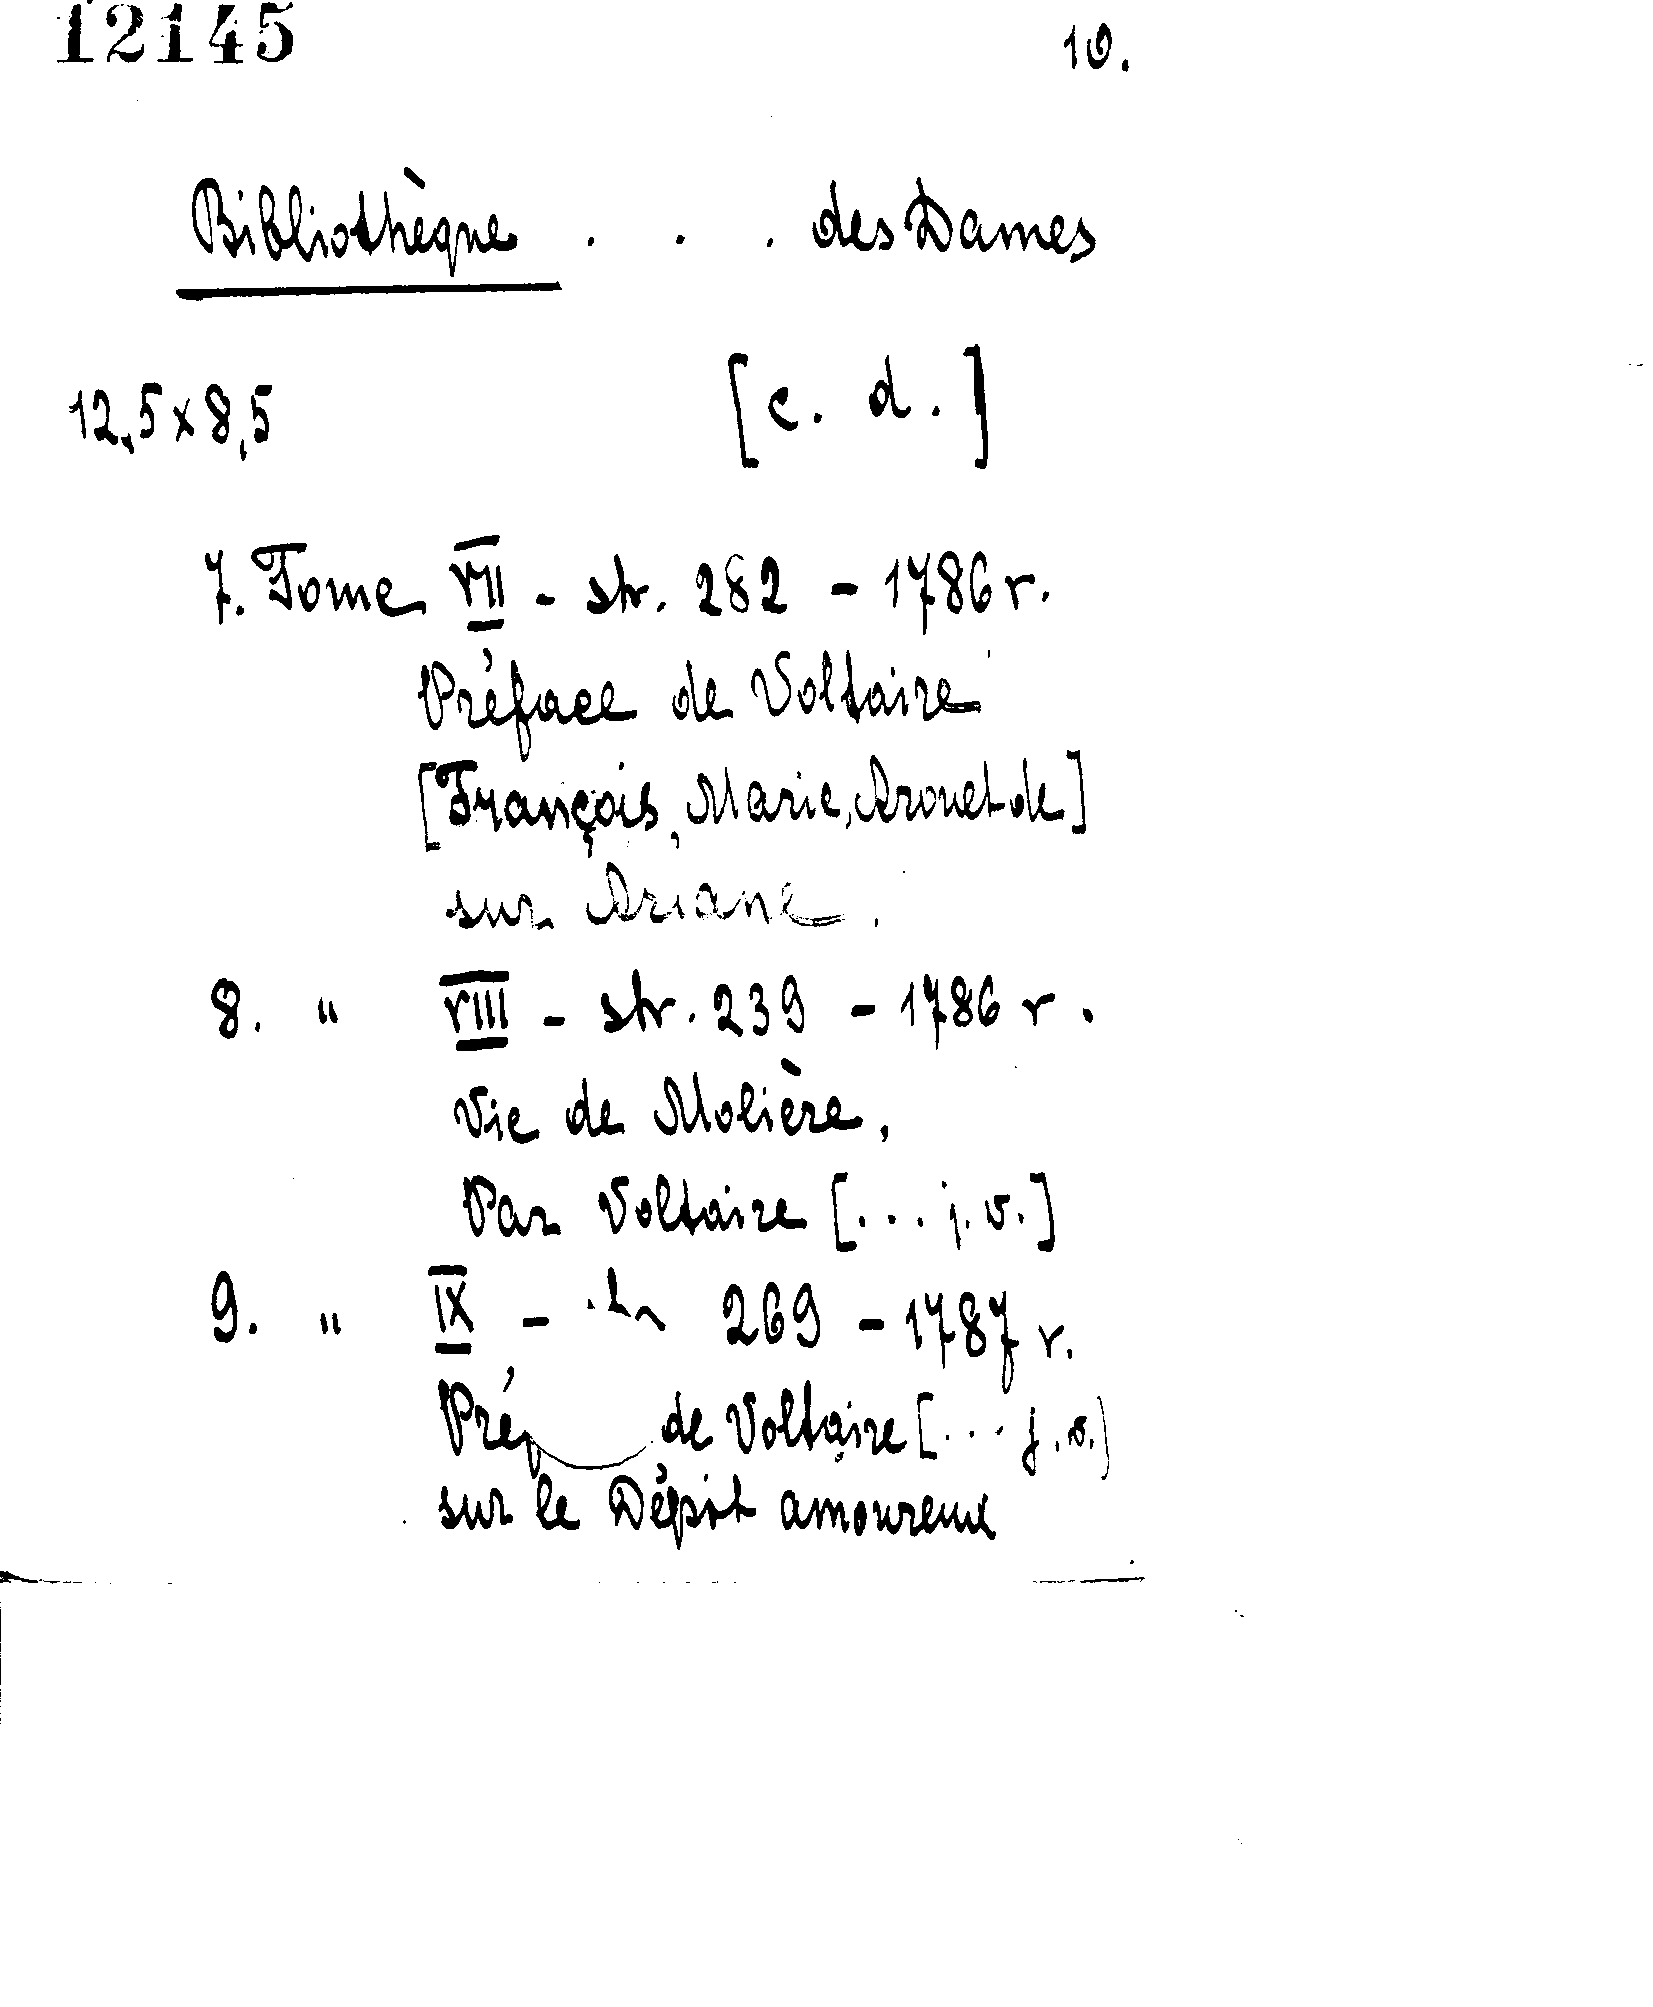 12145 10.
Bibliothèque . . . des Dames
12,5 x 8,5 [c. d.]
7. Tome VII - str. 282 - 1786 r.
Préface de Voltaire
[François, Marie, Arouet de]
sur Ariane.
8. " VIII - str. 239 - 1786 r.
Vie de Molière,
Par Voltaire [... j. w.]
9. " IX - 269 - 1787 r.
de Voltaire [... j. w.]
sur le Dépit amoureux